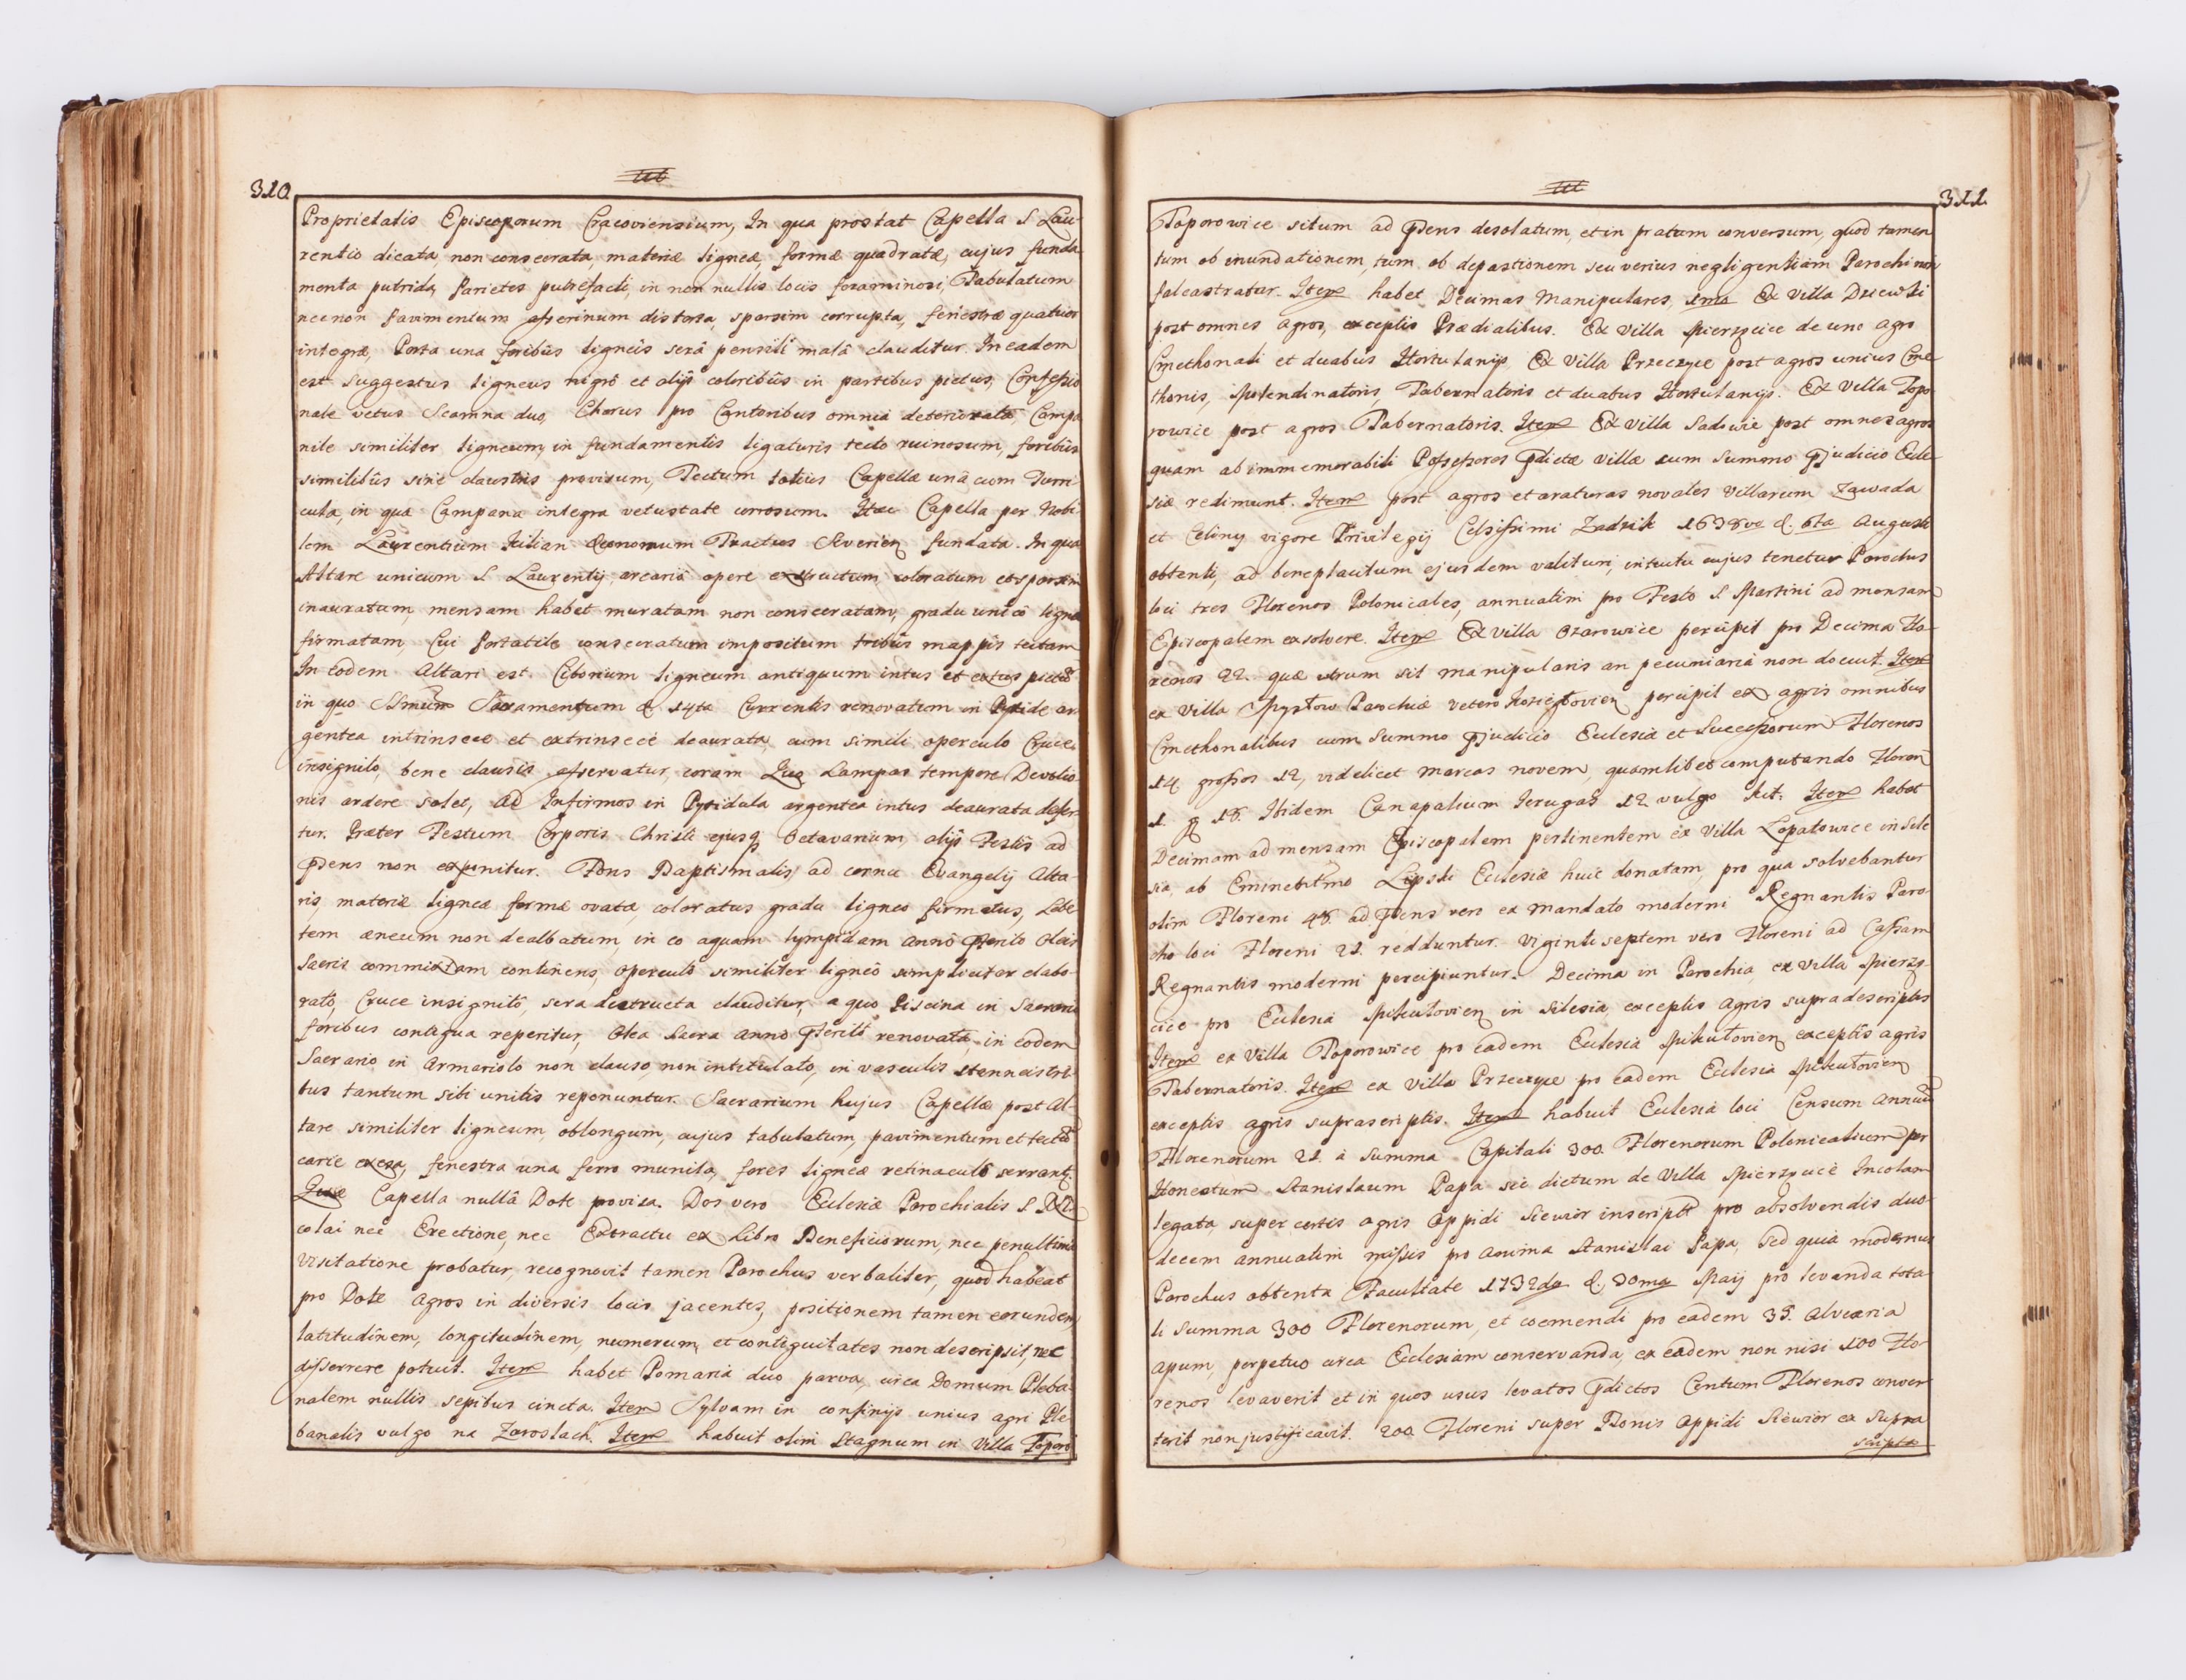 310
Proprietatis Episcoporum Cracoviensium, In qua prostat Capella S Lau-
rentio dicata non consecrata materiæ ligneæ, formæ quadratæ, cujus funda
menta putrida, Parietes putrefacti, in non nullis locis foraminosi, Tabulatum
necnon Pavimentum asserinum distorta, sparsim corrupta, fenestræ quatuor
integræ, Porta una foribus ligneis serâ pensili malâ clauditur. In eadem
est Suggestus ligneus nigrô et alijs coloribûs in partibus pictus, Confessio
nale vetus Scamna duo, Chorus pro Cantoribus omnia deteriorata, Campa
nile similiter ligneum, in fundamentis ligaturis tecto ruinosum, foribûs
similibûs sine claustris provisum, Tectum totius Capellæ unâ cum Turri
cula, in quâ Campana integra vetustate corrosum. Hæc Capella per Nobi
lem Laurentium Kilian Œconomum Præsses Severien fundata. In qua
Altare unicum S Laurentij, arcariô opere exstructum coloratum et sparsim
inauratum, mensam habet muratam non consecratam, gradu unicô ligneo
firmatam, Cui Portatile consecratum impositum tribûs mappis tectam
In eodem Altari est Ciborium ligneum antiquum intus et extus pictû
in quo SSmum Sacramentum d. 14ta Currentis renovatum in Pyxide ar
gentea intrinsece et extrinsece deaurata cum simili operculo Cruce
insignito, bene clausis asservatur, coram Quo Lampas tempore Devotio
nis ardere solet, ad Infirmos in Pyxidula argentea intus deaurata defer
tur. Præter Festum Corporis Christi ejusq Octavarium, alijs Festis ad
Psens non exponitur. Fons Baptismalis ad cornu Evangelij Alta-
ris, materiæ ligneæ formæ ovatæ, coloratus gradu ligneo firmatus, Lebe
tem æneum non dealbatum, in eo aquam lympidam annô Pterito Oleis
Sacris commixtam continens, operculô similiter ligneô simpliciter elabo-
ratô, Cruce insignitô, sera destructa clauditur, a quo Piscina in Sacrarij
foribus contigua reperitur, Olea Sacra annô Pteritô renovata, in eodem
Sacrario in Armariolo non clauso, non intitulato, in vasculis stanneis tri-
bus tantum sibi unitis reponuntur. Sacrarium hujus Capellæ post Al-
tare similiter ligneum, oblongum, cujus tabulatum, pavimentum et tectû
carie exesa, fenestra una ferro munita, fores ligneæ retinaculô serrant.
Quæ Capella nullâ Dote provisa. Dos vero Ecclesiæ Parochialis S Ni
colai nec Erectione, nec Extractu ex Libro Beneficiorum, nec penultima
Visitatione probatur, recognovit tamen Parochus verbaliter, quod habeat
pro Dote Agros in diversis locis jacentes, positionem tamen eorundem,
latitudinem, longitudinem, numerum, et contiguitates non descripsit, nec
disserere potuit. Item habet Pomaria duo parva, circa Domum Pleba-
nalem nullis sepibus cincta. Item Sylvam in confinijs unius agri Ple
banalis vulgo na Zaroslach. Item habuit olim Stagnum in Villa Toporo
311
Toporowice situm ad Psens desolatum, et in pratum conversum, quod tamen
tum ob inundationem, tum ob depastionem seu verius negligentiam Parochi non
falcastratur. Item habet Decimas Manipulares, 1ma Ex Villa Dziewki
post omnes agros, exceptis Prædialibus. Ex Villa Mierzęcice de uno agro
Cmethonali et duabus Hortulanijs. Ex Villa Przeczyce post agros unius Cme
thonis, Molendinatoris, Tabernatoris et duabus Hortulanijs. Ex Villa Topo
rowice post agros Tabernatoris. Item Ex Villa Sadowie post omnes agros
quam ab immemorabili Possessores Pdictæ villæ cum Summo Pjudicio Eccle
siæ redimunt. Item post agros et araturas novales Villarum Zawada
et Celiny vigore Privilegij Celsissimi Zadzik 1638vo d. 6ta Augusti
obtenti, ad beneplacitum ejusdem valituri, intuitu cujus tenetur Parochus
loci tres Florenos Polonicales, annuatim pro Festo S Martini ad mensam
Episcopalem exsolvere. Item Ex Villa Ozarowice percipit pro Decima Flo-
renos 22. quæ utrum sit manipularis an pecuniaria non docuit. Item
ex Villa Myszkow Parochiæ vetero percipit ex agris omnibus
Cmethonalibus cum Summo Pjudicio Ecclesiæ et Successorum Florenos
14 grossos 12, videlicet marcas novem, quamlibet computando Floren
1. g 18. Ibidem Canapalium Jerugas 12 vulgo kit. Item habet
Decimam ad mensam Episcopalem pertinentem ex Villa Lopatowice in Sile
sia, ab Eminentmo Lipski Ecclesiæ huic donatam, pro qua solvebantur
olim Floreni 48. ad Psens vero ex mandato moderni Regnantis Paro-
cho loci Floreni 21. redduntur. Viginti septem vero Floreni ad Cassam
Regnantis moderni percipiuntur. Decima in Parochia ex Villa Mierzę-
cice pro Ecclesia Mikultovien in Silesia, exceptis Agris supradescriptis
Item ex Villa Toporowice pro eadem Ecclesia Mikultovien exceptis agris
Tabernatoris. Item ex Villa Przeczyce pro eadem Ecclesia Mikultovien
exceptis agris suprascriptis. Item habuit Ecclesia loci Censum annuû
Florenorum 21. a Summa Capitali 300. Florenorum Polonicalium per
Honestum Stanislaum Papa sic dictum de Villa Mierzęcice Incolam
legata, super certis agris Oppidi Siewior inscripta pro absolvendis duo-
decem annuatim missis pro anima Stanislai Papa, Sed quia modernus
Parochus obtenta Facultate 1732do d. 30ma Maij pro levanda tota-
li Summa 300 Florenorum, et coemendi pro eadem 35. alvearia
apum, perpetuo circa Ecclesiam conservanda, ex eadem non nisi 100 Flo-
renos levaverit et in quos usus levatos Pdictos Centum Florenos conver-
terit non justificavit. 200 Floreni super Bonis Oppidi Siewior ex Supra
scripta